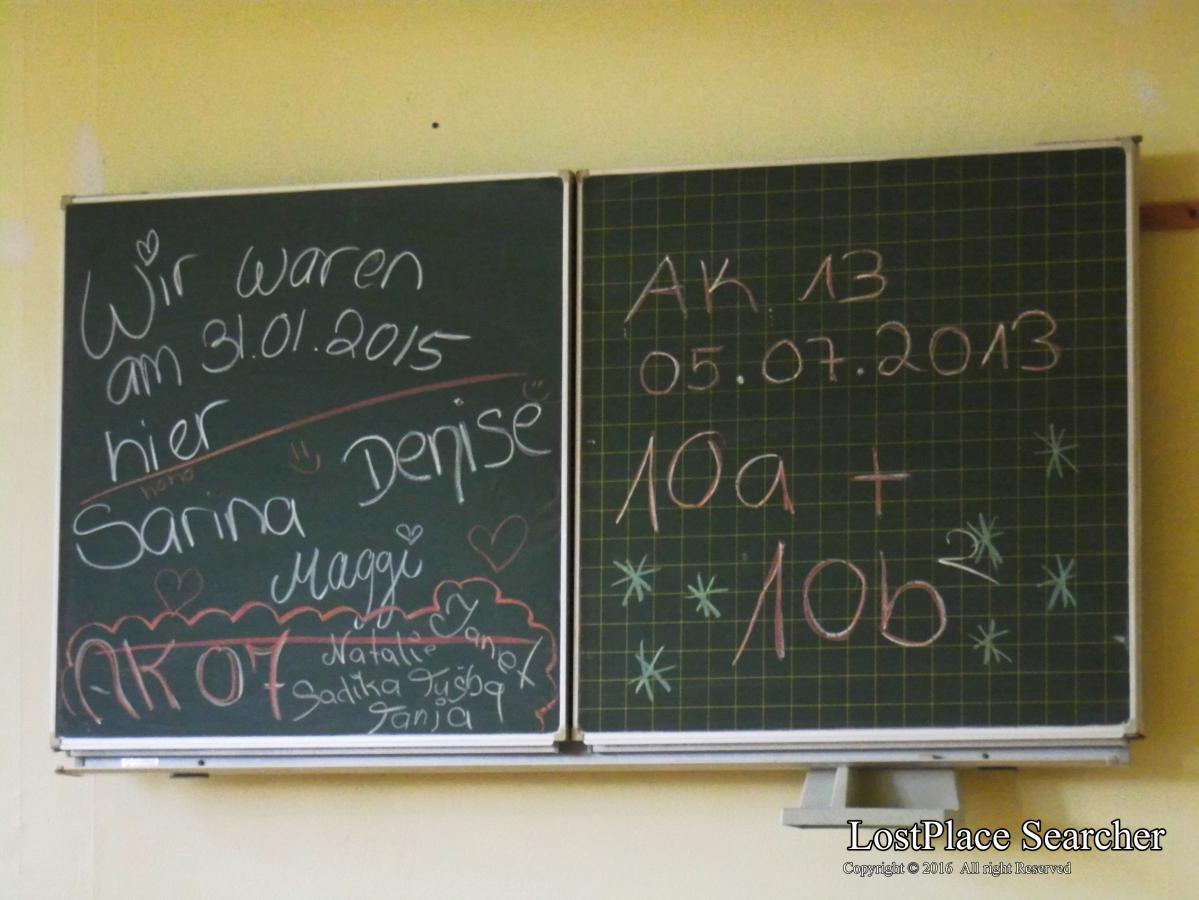 Wir waren
am 31.01.2015
hier
Denise
Sarina
Maggi
AK 07
Natalie
Sadika
Tanja
AK 13
05.07.2013
10a +
10b 2
LostPlace Searcher
Copyright © 2016 All right Reserved